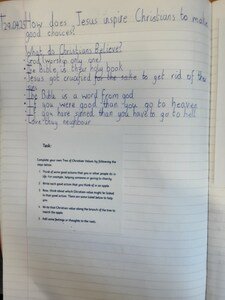 29.04.25 How does Jesus inspire Christians to make
good choices?
What do Christians Believe?
• God (worship only one)
• The Bible is their holy book
• Jesus got crucified for the to get rid of these
sins
• The Bible is a word from god
• If you were good than you go to heaven
• If you have sinned than you have to go to hell
• Love they neighbour
Task:
Complete your own Tree of Christian Values by following the
steps below.
1. Think of some good actions that you or other people do in
life. For example, helping someone or giving to charity.
2. Write each good action that you think of in an apple
3. Now, think about which Christian value might be linked
to that good action. There are some listed below to help
you.
4. Write that Christian value along the branch of the tree to
match the apple.
5. Add some feelings or thoughts to the roots.